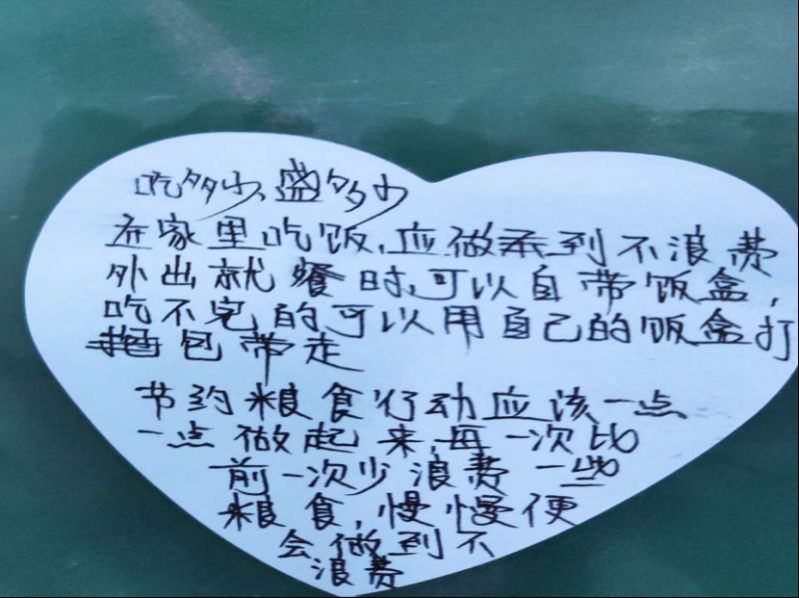 吃多少,盛多少
在家里吃饭,应做到不浪费
外出就餐时,可以自带饭盒,
吃不完的可以用自己的饭盒打
包带走
节约粮食行动应该一点
一点做起来,每一次比
前一次少浪费一些
粮食,慢慢便
会做到不
浪费